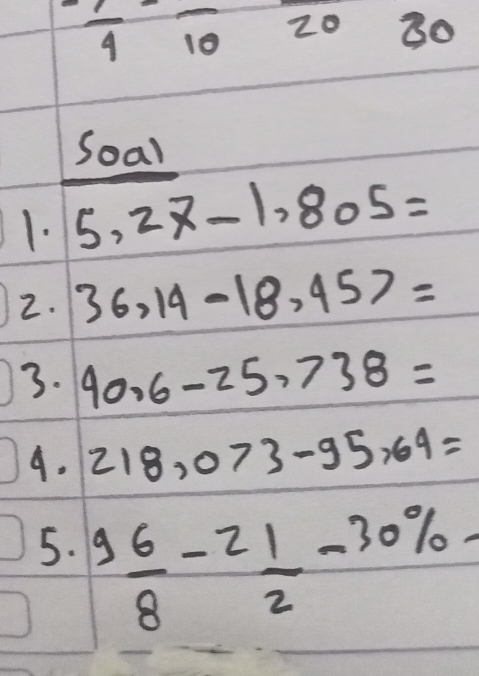 4 10 20 30
Soal
1. 5,27 - 1,805 =
2. 36,14 - 18,457 =
3. 40,6 - 25,738 =
4. 218,073 - 95,64 =
5. 9 6/8 - 2 1/2 - 30% -